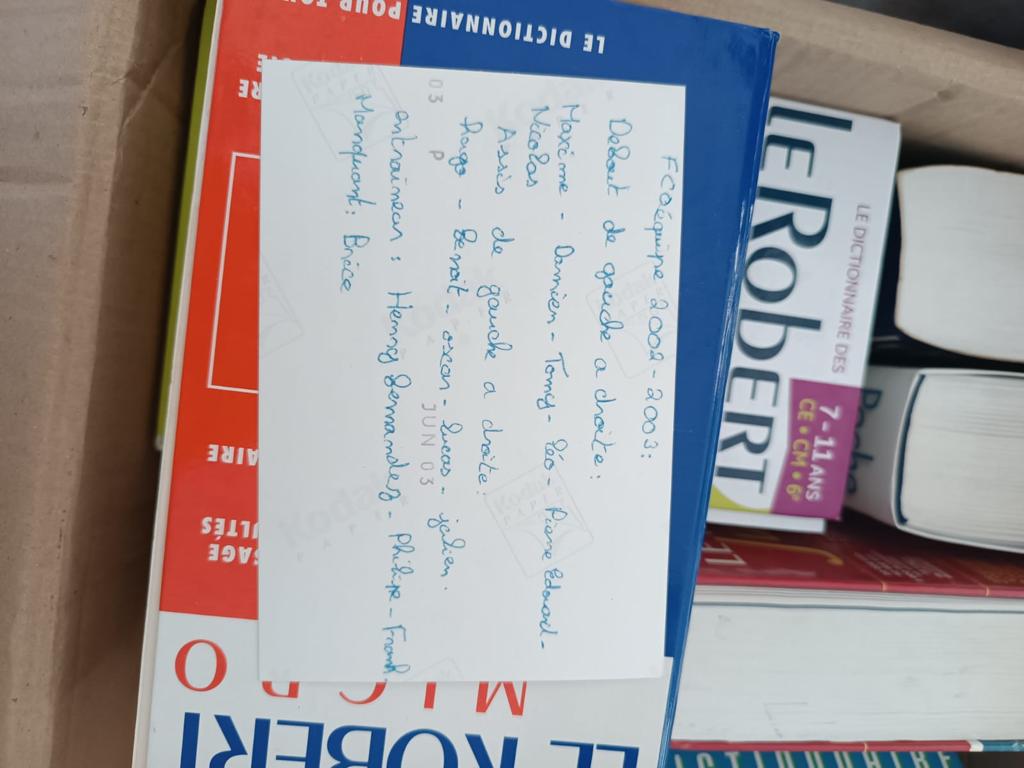 Fcoéquipe 2002-2003:
Debout de gauche a droite:
Maxime - Damien - Tomy - Léo - Pierre Edouard -
Nicolas
Assis de gauche a droite:
hugo - Benoit - oscar - lucas - julien.
entraineurs: Henry Bernandez - Philipe - Frank
Manquant: Brice
03 P JUN 03
Kodak
LE DICTIONNAIRE POUR TOU
RE
AIRE
ULTÉS
SAGE
MICRO
LE ROBERT
LE ROBERT
LE DICTIONNAIRE DES
7-11 ANS
CE • CM • 6e
Poche